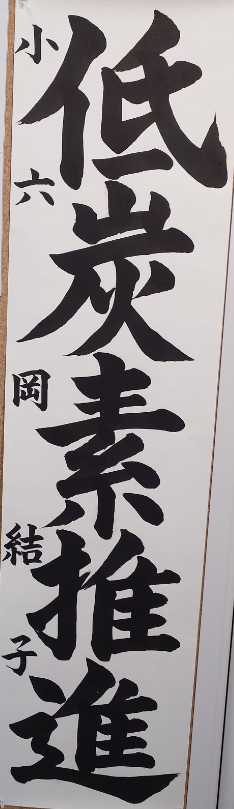 低炭素推進
小六 岡結子